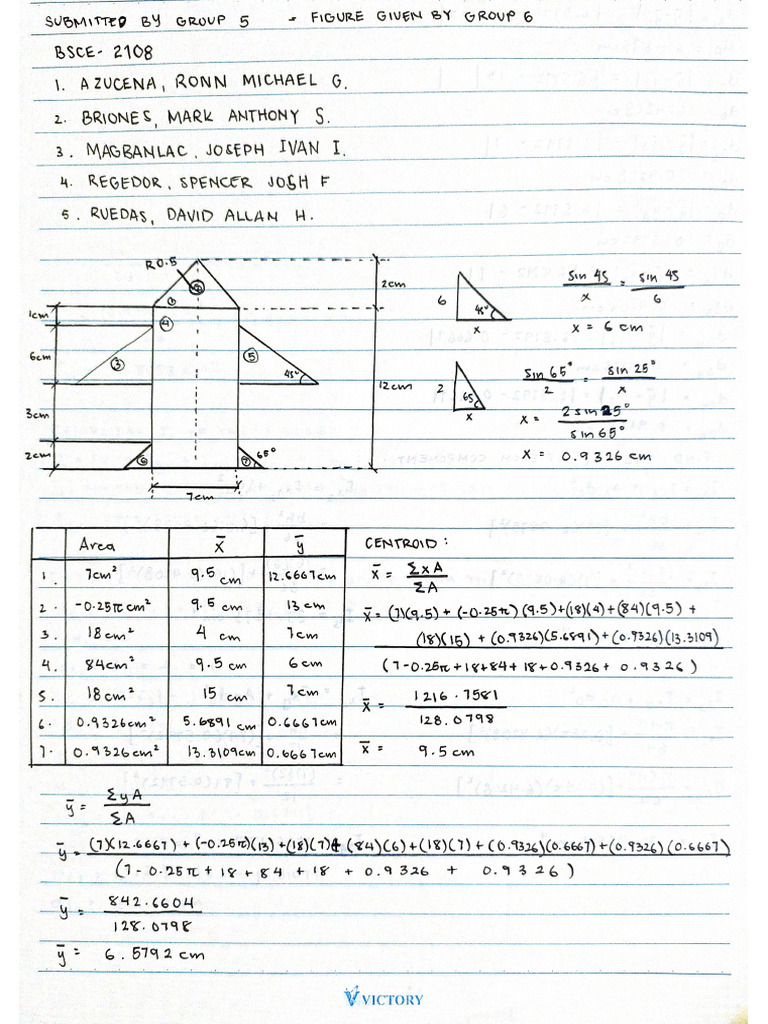 SUBMITTED BY GROUP 5 - FIGURE GIVEN BY GROUP 6
BSCE- 2108
1. AZUCENA, RONN MICHAEL G.
2. BRIONES, MARK ANTHONY S.
3. MAGBANLAC, JOSEPH IVAN I.
4. REGEDOR, SPENCER JOSH F
5. RUEDAS, DAVID ALLAN H.
R0.5
1
2
4
3
5
6
7
45°
65°
1cm
6cm
3cm
2cm
7cm
2cm
12cm
6
45°
x
sin 45 / x = sin 45 / 6
x = 6 cm
2
65
x
sin 65° / 2 = sin 25° / x
x = 2 sin 25° / sin 65°
x = 0.9326 cm
Area x̄ ȳ
1. 7cm² 9.5 cm 12.6667cm
2. -0.25π cm² 9.5 cm 13 cm
3. 18cm² 4 cm 7cm
4. 84cm² 9.5 cm 6cm
5. 18cm² 15 cm 7cm
6. 0.9326cm² 5.6891 cm 0.6667cm
7. 0.9326cm² 13.3109cm 0.6667cm
CENTROID:
x̄ = ΣxA / ΣA
x̄ = (7)(9.5) + (-0.25π)(9.5)+(18)(4)+(84)(9.5) +
(18)(15) + (0.9326)(5.6891)+(0.9326)(13.3109)
(7-0.25π+18+84+18+0.9326+ 0.9326)
x̄ = 1216.7581 / 128.0798
x̄ = 9.5 cm
ȳ = ΣyA / ΣA
ȳ = (7)(12.6667) + (-0.25π)(13)+(18)(7)+(84)(6)+(18)(7)+(0.9326)(0.6667)+(0.9326)(0.6667)
(7-0.25π + 18 + 84 + 18 + 0.9326 + 0.9326)
ȳ = 842.6604 / 128.0798
ȳ = 6.5792 cm
VICTORY